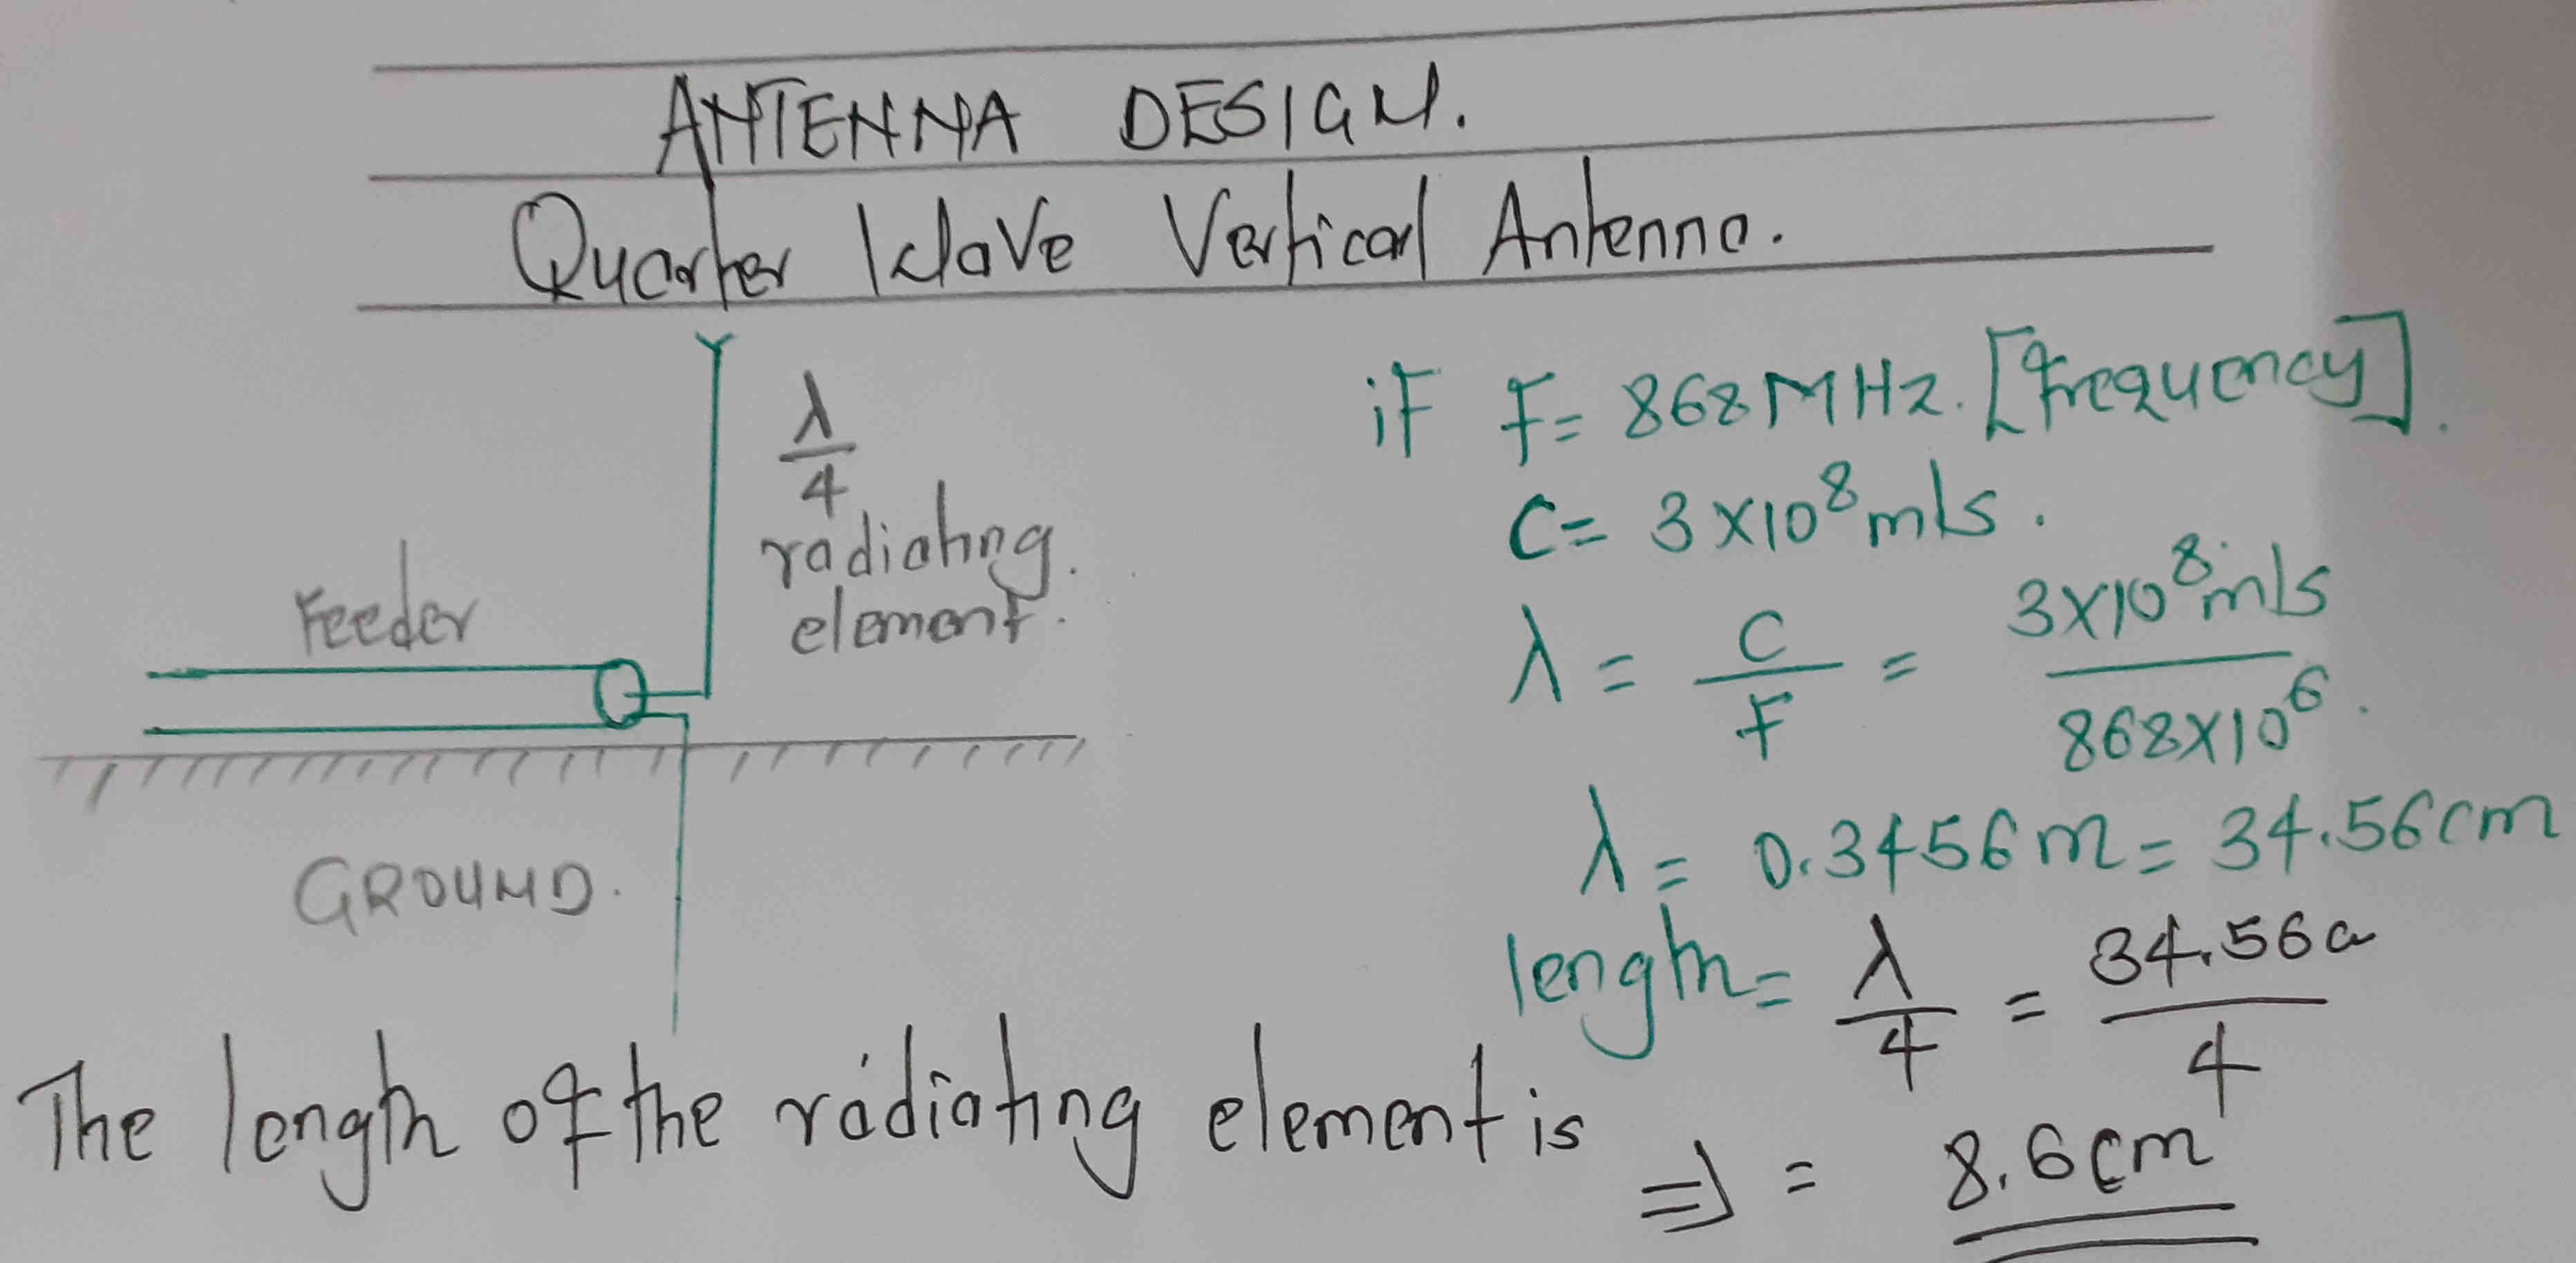 ANTENNA DESIGN.
Quarter Wave Vertical Antenna.
λ/4
radiating.
element.
Feeder
GROUND.
if F = 868 MHz. [Frequency].
C = 3×10⁸ m/s.
λ = C/F = 3×10⁸ m/s / 868×10⁶.
λ = 0.3456m = 34.56cm
length = λ/4 = 34.56cm/4
The length of the radiating element is ⇒ = 8.6cm